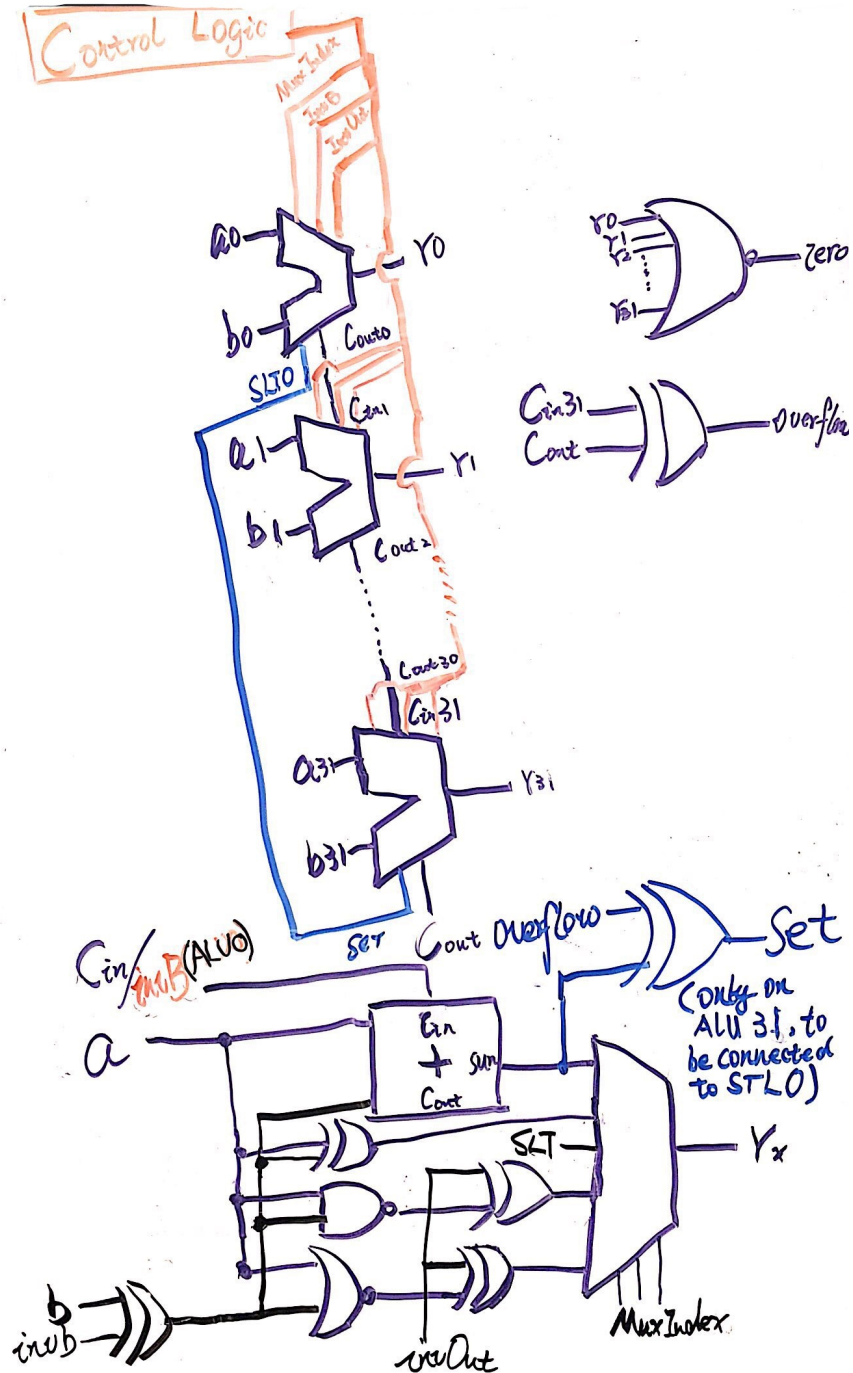 Control Logic
MuxIndex
InvB
InvOut
a0
r0
b0
Cout0
SLT0
Cin1
a1
r1
b1
Cout2
Cout30
Cin31
a31
r31
b31
SET
Cout
r0
r1
r2
r31
zero
Cin31
Cout
overflow
overflow
Set
(only on
ALU 31, to
be connected
to STL0)
Cin/invB(ALU0)
a
Cin
+
sum
Cout
SLT
rx
b
invb
invOut
MuxIndex